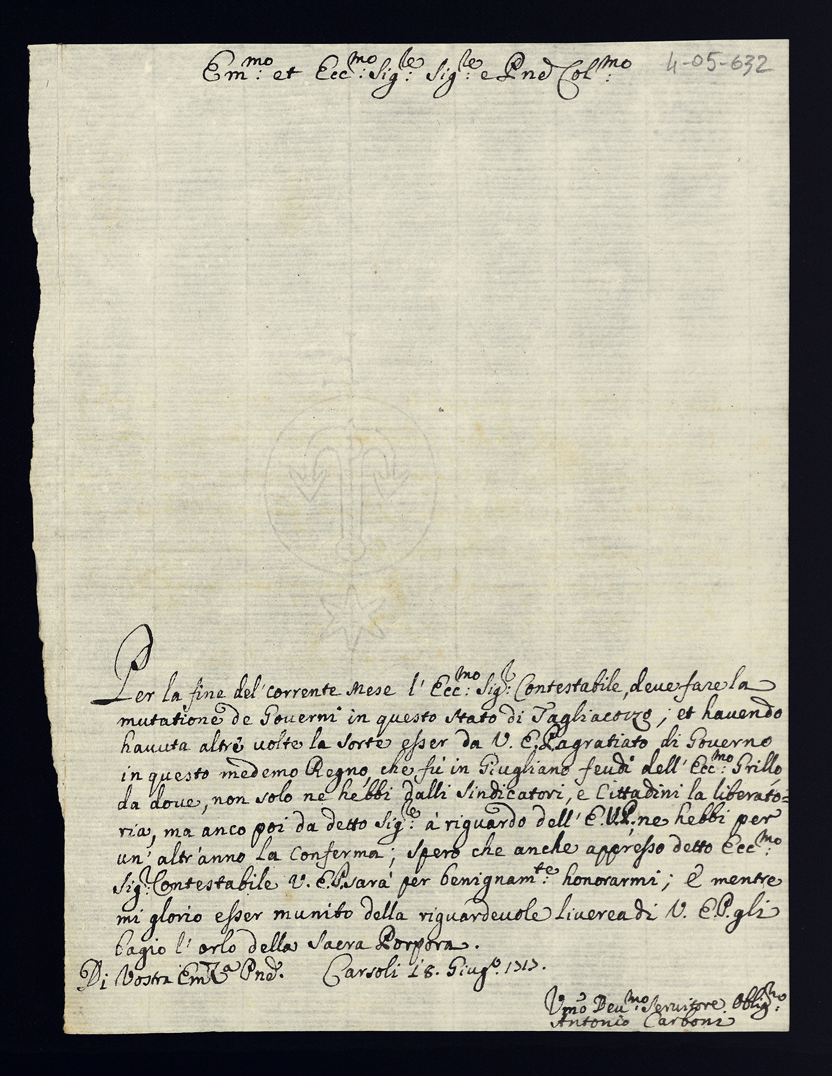 Em.mo et Ecc.mo Sig.le Sig.le e Pnẽ Col.mo 4-05-632
Per la fine del' corrente Mese l' Ecc.mo Sig.r Contestabile, deve fare la
mutatione de Governi in questo stato di Tagliacozzo; et havendo
havuta altre volte la sorte esser da V. E. P. agratiato di Governo
in questo medemo Regno, che fù in Giugliano feudi dell' Ecc.mo Grillo
da dove, non solo ne hebbi dalli Sindicatori, e Cittadini la liberato=
ria, ma anco poi da detto Sig.e à riguardo dell' E. V. P. ne hebbi per
un' altr' anno la conferma; spero che anche appresso detto Ecc.mo
Sig.r Contestabile V. E. P. sarà per benignam.te honorarmi; E mentre
mi glorio esser munito della riguardevole liverea di V. E. P. gli
bagio l' orlo della Sacra Porpora.
Di Vostra Em.za Pnẽ. Carsoli 18. Giug.o 1717.
Vmo Deu.mo Servitore Oblig.mo
Antonio Carboni